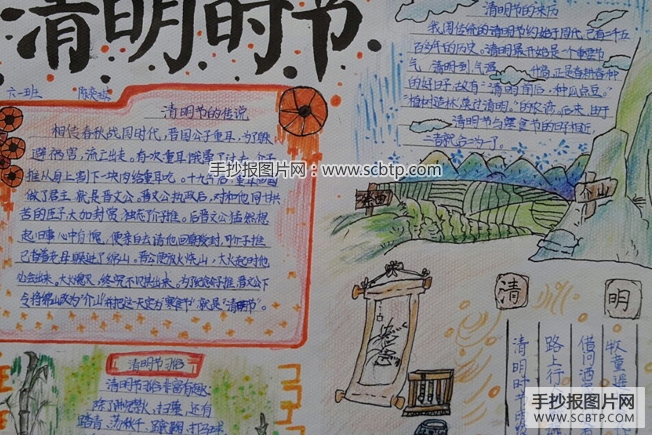 清明时节
六一班
清明节的传说
相传春秋战国时代，晋国公子重耳，为了躲
避祸害，流亡出走。有次重耳饿晕了过去，介子
推从身上割下一块肉给重耳吃。十九年后，重耳回国
做了君主，就是晋文公。晋文公执政后，对和他同甘共
苦的臣子大加封赏，独忘介子推。后晋文公猛然想
起旧事心中有愧，便亲自去请他回来受封，可介子推
已背着老母躲进了绵山。晋公使用火烧山，大火起时他
会出来。大火熄灭，终究不见其出来。为纪念介子推，晋文公下
令将绵山改为“介山”并把这一天定为“寒食节”就是“清明节”。
清明节的来历
我国传统的清明节约始于周代，已有二千五
百多年的历史。清明最开始是一个重要节
气，清明一到，气温 正是春耕春种
的好日子，故有“清明前后，种瓜点豆”
“植树造林，莫过清明。”的农谚。后来，由于
清明节与寒食节的日子相近
手抄报图片网：www.scbtp.com
清明
清明时节
路上行
借问酒
牧童遥
清明节习俗
清明节习俗丰富有趣
除了 扫墓，还有
踏青、荡秋千、 打马球
手抄报图片网
WWW.SCBTP.COM